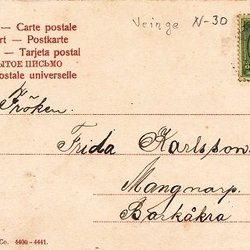 Veinge N-30
— Carte postale
rt — Postkarte
— Tarjeta postal
ЫТОЕ ПИСЬМО
ostale universelle
Fröken.
Frida Karlsson
Mangnarp.
Barkåkra
Co. 4400 - 4441.